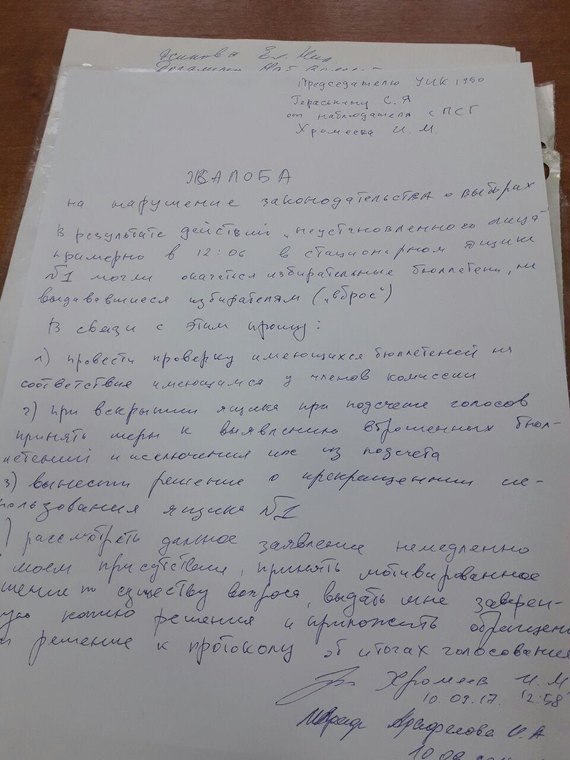 Председателю УИК 1950
Гераськину С.Я
от наблюдателя с ПСГ
Хромеева И. М.
ЖАЛОБА
на нарушение законодательства о выборах
В результате действий "неустановленного лица"
примерно в 12:06 в стационарном ящике
№1 могли оказаться избирательные бюллетени, не
выдававшиеся избирателям ("вброс")
В связи с этим прошу:
1) провести проверку имеющихся бюллетеней на
соответствие имеющимся у членов комиссии
2) при вскрытии ящика при подсчете голосов
принять меры к выявлению вброшенных бюл-
летеней и исключения их из подсчета
3) вынести решение о прекращении ис-
пользования ящика №1
) рассмотреть данное заявление немедленно
моем присутствии, принять мотивированное
шение по существу вопроса, выдать мне заверен-
ую копию решения и приложить обращени
и решение к протоколу об итогах голосования
Хромеев И. М
10.09.17. 12:58
И.А